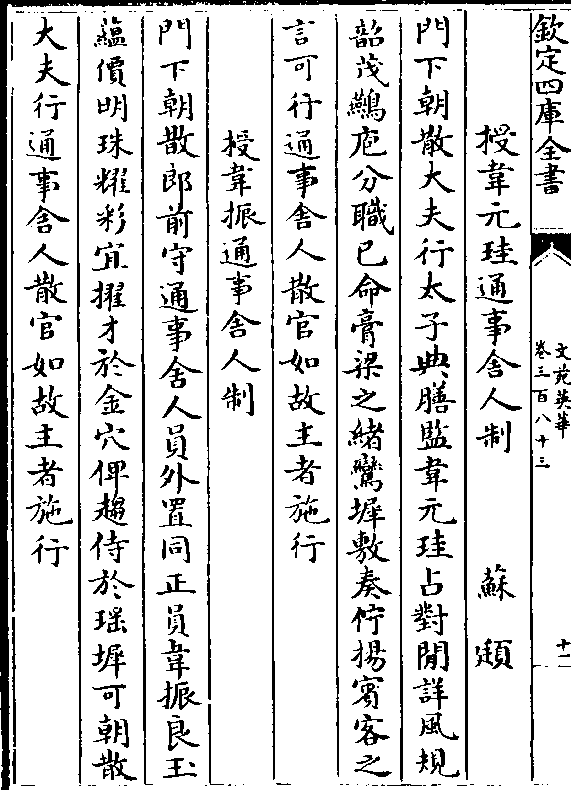 欽定四庫全書
文苑英華
卷三百八十三
十一
授韋元珪通事舍人制 蘇頲
門下朝散大夫行太子典膳監韋元珪占對閒詳風規
韶茂鷯庖分職已命膏梁之緒鸞墀敷奏佇揚賓客之
言可行通事舍人散官如故主者施行
授韋振通事舍人制
門下朝散郎前守通事舍人員外置同正員韋振良玉
蘊價明珠耀彩宜擢才於金穴俾趨侍於瑶墀可朝散
大夫行通事舍人散官如故主者施行